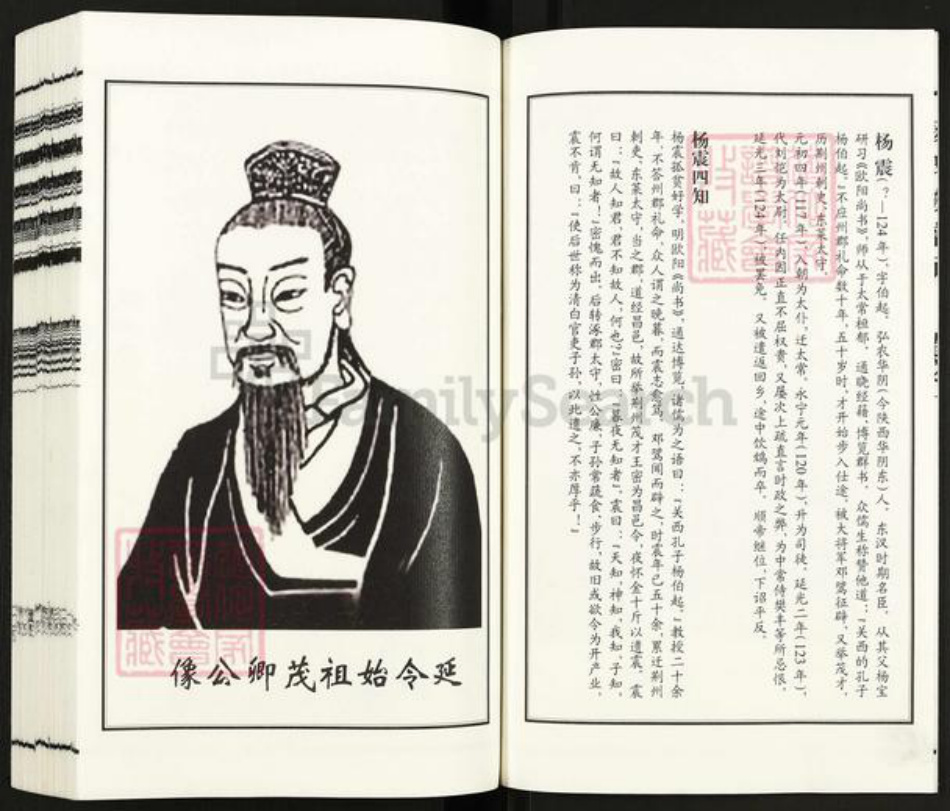 杨震(？—124年)，字伯起。弘农华阴(今陕西华阴东)人。东汉时期名臣。从其父杨宝
研习《欧阳尚书》，师从于太常桓郁。通晓经籍、博览群书。众儒生称赞他道：“关西的孔子
杨伯起。”不应州郡礼命数十年，五十岁时，才开始步入仕途。被大将军邓骘征辟，又举茂才，
历荆州刺史、东莱太守。
元初四年(117年)，入朝为太仆，迁太常。永宁元年(120年)，升为司徒。延光二年(123年)，
代刘恺为太尉。任内因正直不屈权贵，又屡次上疏直言时政之弊，为中常侍樊丰等所忌恨。
延光三年(124年)，被罢免。又被遣返回乡，途中饮鸩而卒。顺帝继位，下诏平反。
杨震四知
杨震孤贫好学，明欧阳《尚书》，通达博览，诸儒为之语曰：“关西孔子杨伯起。”教授二十余
年，不答州郡礼命，众人谓之晚暮，而震志愈笃。邓骘闻而辟之，时震年已五十余，累迁荆州
刺史、东莱太守，当之郡，道经昌邑，故所举荆州茂才王密为昌邑令，夜怀金十斤以遗震。震
曰：“故人知君，君不知故人，何也？”密曰：“暮夜无知者”。震曰：“天知，神知，我知，子知。
何谓无知者！”密愧而出。后转涿郡太守，性公廉，子孙常蔬食、步行，故旧或欲令为开产业，
震不肯，曰：“使后世称为清白官吏子孙，以此遗之，不亦厚乎！”
延令始祖茂卿公像
FamilySearch